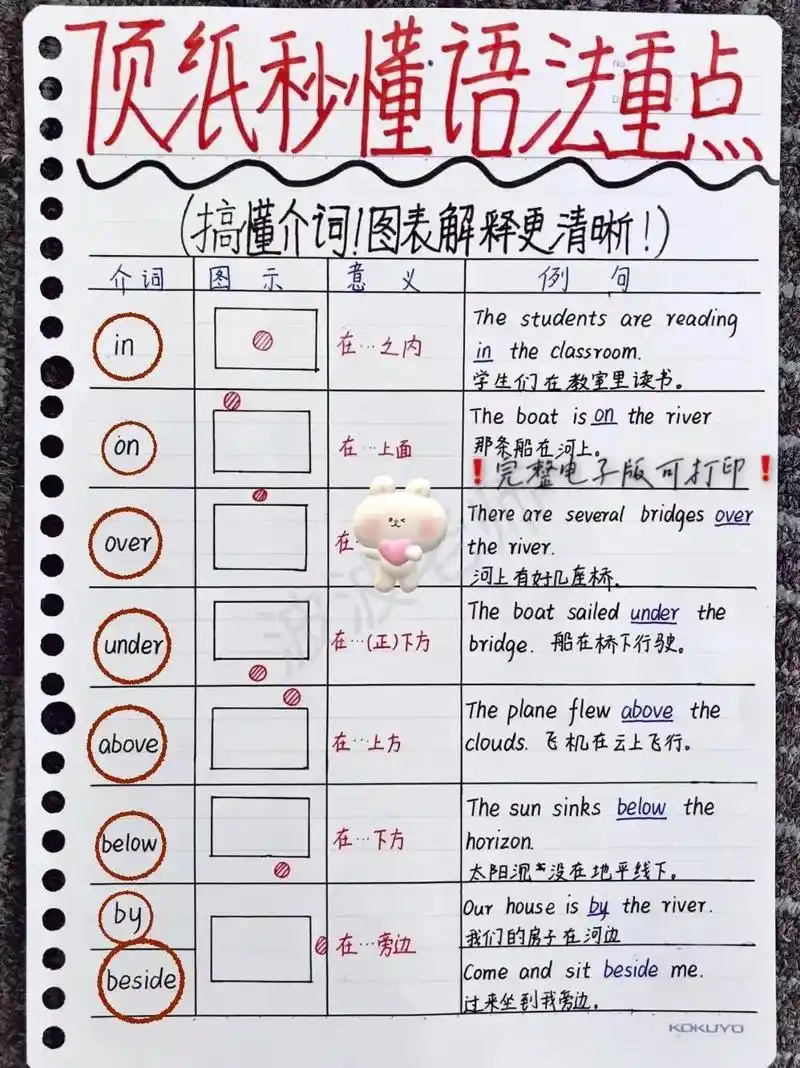 顶纸秒懂语法重点
(搞懂介词!图表解释更清晰!)
介词 图示 意义 例句
in 在…之内 The students are reading
in the classroom.
学生们在教室里读书。
on 在…上面 The boat is on the river
那条船在河上。
❗完整电子版可打印❗
over 在 There are several bridges over
the river.
河上有好几座桥.
under 在…(正)下方 The boat sailed under the
bridge. 船在桥下行驶。
above 在…上方 The plane flew above the
clouds. 飞机在云上飞行。
below 在…下方 The sun sinks below the
horizon.
太阳沉没在地平线下。
by 在…旁边 Our house is by the river.
我们的房子在河边
beside Come and sit beside me.
过来坐到我旁边。
KOKUYO